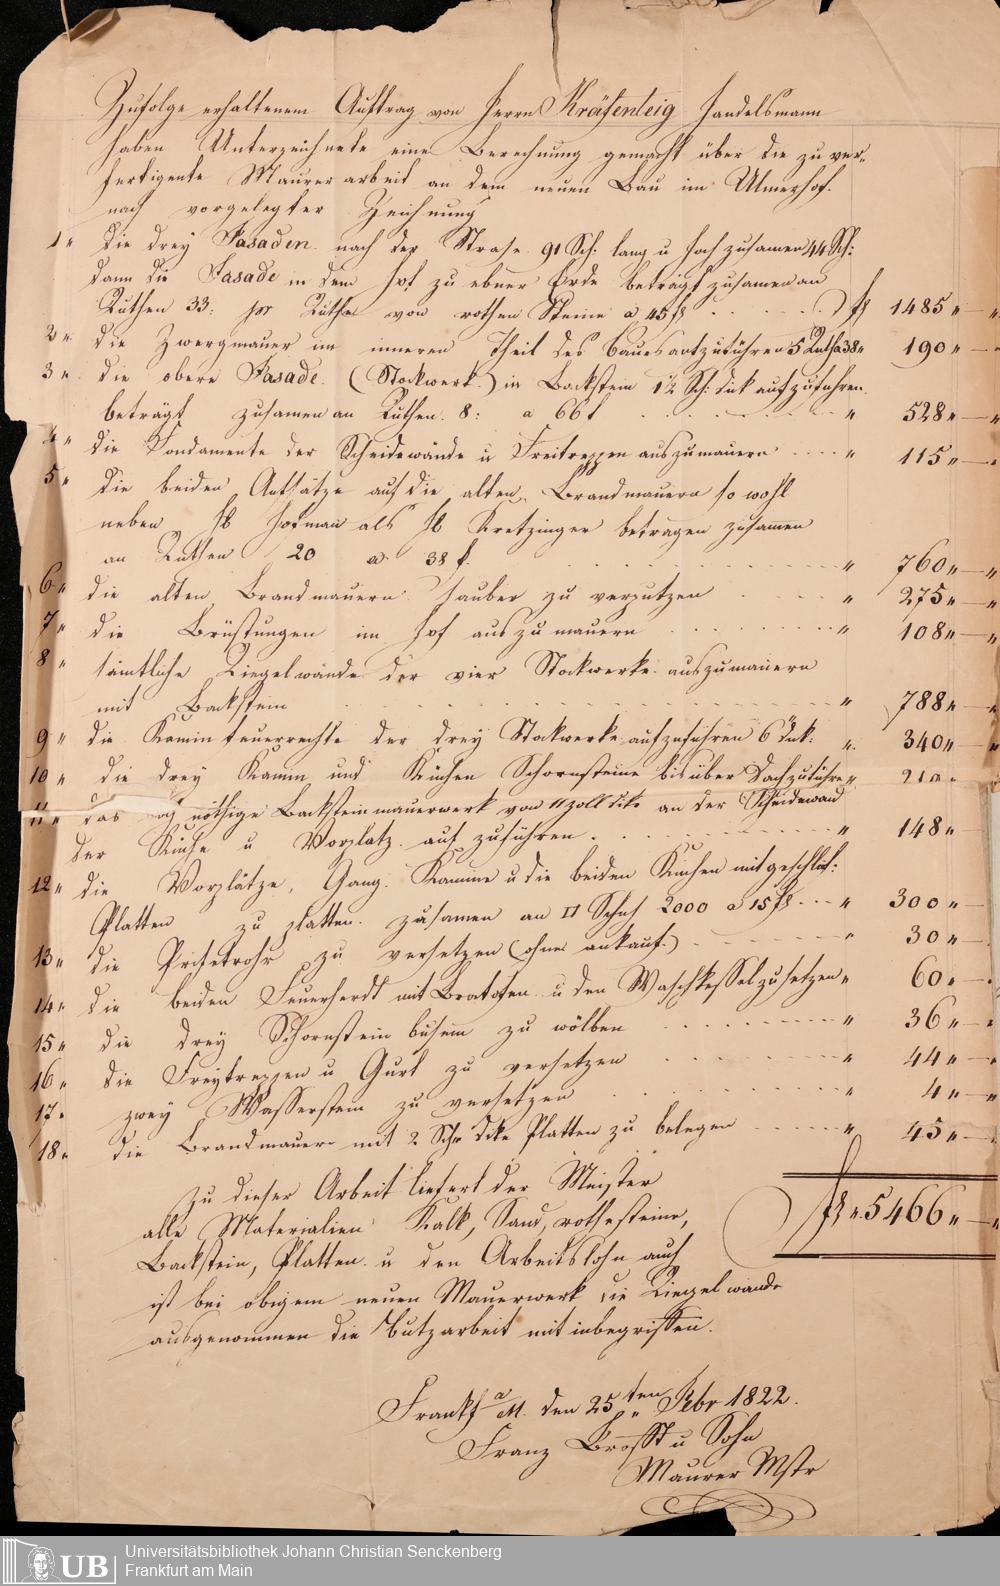 Zufolge erhaltenem Auftrag von Herrn Kräfenleig Handelsmann
haben Unterzeichnete eine Berechnung gemacht über die zu ver-
fertigente Maurerarbeit an dem neuen Bau im Ulmerhof.
nach vorgelegter Zeichnung
1 " die drey Fasaden nach der Strase 91 Sch: lang u hoch zusamen 44 Sch:
dann die Fasade in dem Hof zu ebner Erde beträgt zusamen an
Ruthen 33: pr Ruthe von rothen Steine a 45 f 1485 " — "
2 " die Zwergmauer im inneren Theil des Baues aufzuführen 5 Ruth a 38 " 190 " — "
3 " die obere Fasade (Stockwerk) in Backstein 1½ Sch: dick aufzuführen
beträgt zusamen an Ruthen 8: a 66 f " 528 " — "
4 " die Fondamente der Scheidewände u Freitreppen auszumauern " 115 " — "
5 " die beiden Aufsätze auf die alten Brandmauern so wohl
neben H Hofman als H Kretzinger betragen zusamen
an Ruthen 20 a 38 f. " 760 " — "
6 " die alten Brandmauern sauber zu verputzen " 275 " — "
7 " die Brüstungen im Hof auszumauern " 108 " — "
8 " sämtliche Riegelwände der vier Stockwerke auszumauern
mit Backstein " 788 " — "
9 " die Kamin feuerrechte der drey Stockwerke aufzuführen 6" dick: " 340 " — "
10 " die drey Kamin und Küchen Schornsteine bis über Dach zuführen " 210 "
11 " das nöthige Backsteinmauerwerk von 11 zoll dike an der Scheidewand
der Küche u Vorplatz auf zuführen " 148 " —
12 " die Vorplätze, Gang, Kamine u die beiden Küchen mit geschlif:
Platten zu platten zusamen an □ Schuh 2000 a 15 f " 300 " —
13 " die Prifetrohr zu versetzen (ohne ankauf) " 30 " —
14 " die beiden Feuerherdt mit Bratofen u den Waschkessel zu setzen " 60 " —
15 " die drey Schornstein busem zu wölben " 36 " — "
16 " die Freytreppen u Gurt zu versetzen " 44 " — "
17 " zwey Wasserstein zu versetzen " 4 " — "
18 " die Brandmauer mit 2 Schu dike Platten zu belegen " 45 " — "
f " 5466 " — "
Zu dieser Arbeit liefert der Meister
alle Materialien Kalk, Sand, rothesteine,
Backstein, Platten u den Arbeitslohn auch
ist bei obigem neuen Mauerwerk die Riegelwände
ausgenommen die Butzarbeit mit inbegriffen.
Frankf a M. den 25ten Febr 1822.
Franz Brosst u Sohn
Maurer Mstr
UB
Universitätsbibliothek Johann Christian Senckenberg
Frankfurt am Main